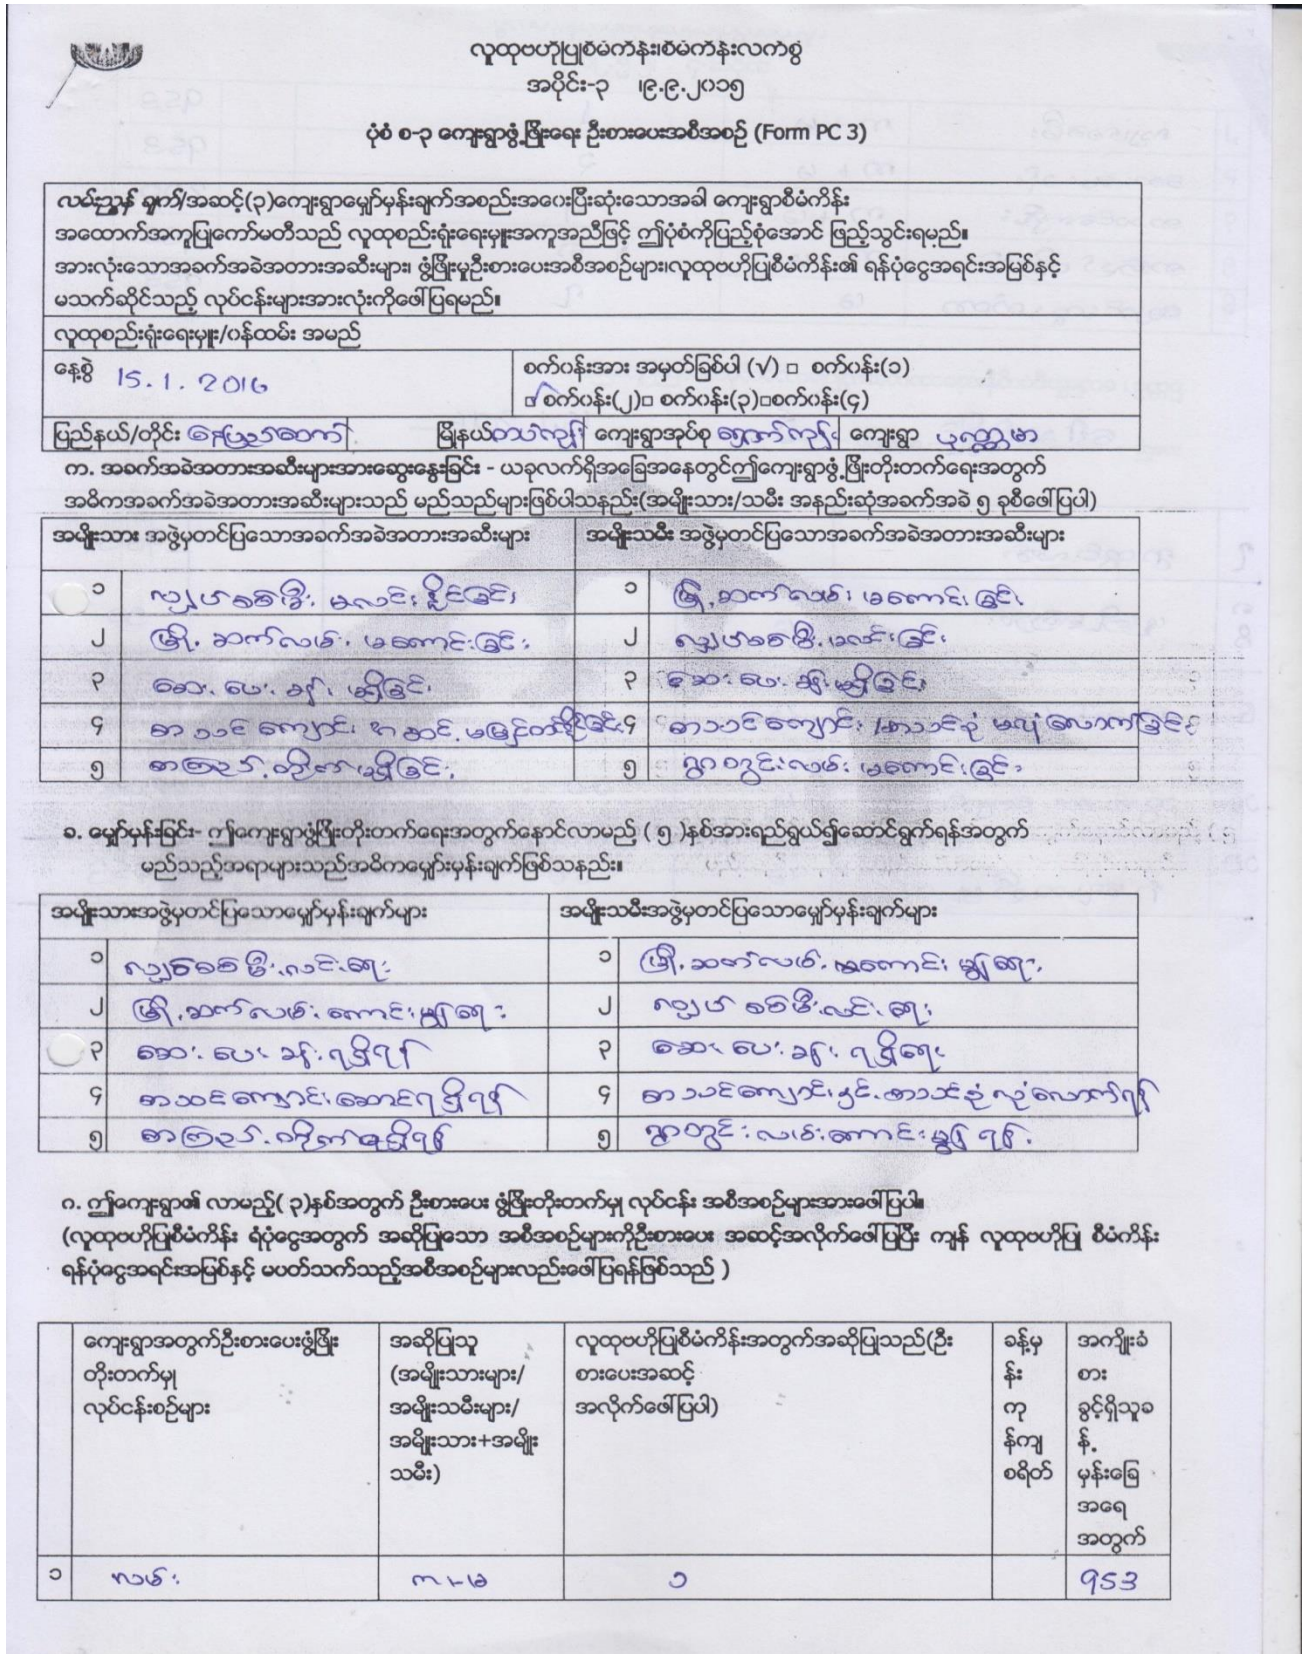 လူထုဗဟိုပြုစီမံကိန်း၊စီမံကိန်းလက်စွဲ
အပိုင်း-၃ ၊၉.၉.၂၀၁၅
ပုံစံ စ-၃ ကျေးရွာဖွံ့ဖြိုးရေး ဦးစားပေးအစီအစဉ် (Form PC 3)
လမ်းညွှန် ချက်/အဆင့်(၃)ကျေးရွာမျှော်မှန်းချက်အစည်းအဝေးပြီးဆုံးသောအခါ ကျေးရွာစီမံကိန်း
အထောက်အကူပြုကော်မတီသည် လူထုစည်းရုံးရေးမှူးအကူအညီဖြင့် ဤပုံစံကိုပြည့်စုံအောင် ဖြည့်သွင်းရမည်။
အားလုံးသောအခက်အခဲအတားအဆီးများ၊ ဖွံ့ဖြိုးမှုဦးစားပေးအစီအစဉ်များ၊လူထုဗဟိုပြုစီမံကိန်း၏ ရန်ပုံငွေအရင်းအမြစ်နှင့်
မသက်ဆိုင်သည့် လုပ်ငန်းများအားလုံးကိုဖေါ်ပြရမည်။
လူထုစည်းရုံးရေးမှူး/ဝန်ထမ်း အမည်
နေ့စွဲ 15.1.2016 စက်ဝန်းအား အမှတ်ခြစ်ပါ (√) □ စက်ဝန်း(၁)
□√ စက်ဝန်း(၂)□ စက်ဝန်း(၃)□စက်ဝန်း(၄)
ပြည်နယ်/တိုင်း နေပြည်တော် မြို့နယ် တပ်ကုန်း ကျေးရွာအုပ်စု ရွှေအင်ကုန်း ကျေးရွာ ပုဏ္ဏမာ
က. အခက်အခဲအတားအဆီးများအားဆွေးနွေးခြင်း - ယခုလက်ရှိအခြေအနေတွင်ဤကျေးရွာဖွံ့ဖြိုးတိုးတက်ရေးအတွက်
အဓိကအခက်အခဲအတားအဆီးများသည် မည်သည်များဖြစ်ပါသနည်း(အမျိုးသား/သမီး အနည်းဆုံးအခက်အခဲ ၅ ခုစီဖေါ်ပြပါ)
အမျိုးသား အဖွဲ့မှတင်ပြသောအခက်အခဲအတားအဆီးများ အမျိုးသမီး အဖွဲ့မှတင်ပြသောအခက်အခဲအတားအဆီးများ
၁ လျှပ်စစ်မီး မလင်းနိုင်ခြင်း ၁ မြို့ဆက်လမ်း မကောင်းခြင်း
၂ မြို့ဆက်လမ်း မကောင်းခြင်း ၂ လျှပ်စစ်မီး မလင်းခြင်း
၃ ဆေးပေးခန်း မရှိခြင်း ၃ ဆေးပေးခန်း မရှိခြင်း
၄ စာသင်ကျောင်း အဆင့် မမြှင့်တင်နိုင်ခြင်း ၄ စာသင်ကျောင်း/စာသင်ခုံ မလုံလောက်ခြင်း
၅ စာကြည့်တိုက် မရှိခြင်း ၅ ရွာတွင်းလမ်း မကောင်းခြင်း
ခ. မျှော်မှန်းခြင်း- ဤကျေးရွာဖွံ့ဖြိုးတိုးတက်ရေးအတွက်နောင်လာမည့် ( ၅ )နှစ်အားရည်ရွယ်၍ဆောင်ရွက်ရန်အတွက်
မည်သည့်အရာများသည်အဓိကမျှော်းမှန်းချက်ဖြစ်သနည်း။
အမျိုးသားအဖွဲ့မှတင်ပြသောမျှော်မှန်းချက်များ အမျိုးသမီးအဖွဲ့မှတင်ပြသောမျှော်မှန်းချက်များ
၁ လျှပ်စစ်မီးလင်းရေး ၁ မြို့ဆက်လမ်း ကောင်းမွန်ရေး
၂ မြို့ဆက်လမ်းကောင်းမွန်ရေး ၂ လျှပ်စစ်မီးလင်းရေး
၃ ဆေးပေးခန်းရရှိရန် ၃ ဆေးပေးခန်းရရှိရေး
၄ စာသင်ကျောင်းဆောင်ရရှိရန် ၄ စာသင်ကျောင်းနှင့်စာသင်ခုံလုံလောက်ရန်
၅ စာကြည့်တိုက်ရရှိရန် ၅ ရွာတွင်းလမ်းကောင်းမွန်ရန်
ဂ. ဤကျေးရွာ၏ လာမည့်( ၃)နှစ်အတွက် ဦးစားပေး ဖွံ့ဖြိုးတိုးတက်မှု လုပ်ငန်း အစီအစဉ်များအားဖေါ်ပြပါ။
(လူထုဗဟိုပြုစီမံကိန်း ရံပုံငွေအတွက် အဆိုပြုသော အစီအစဉ်များကိုဦးစားပေး အဆင့်အလိုက်ဖေါ်ပြပြီး ကျန် လူထုဗဟိုပြု စီမံကိန်း
ရန်ပုံငွေအရင်းအမြစ်နှင့် မပတ်သက်သည့်အစီအစဉ်များလည်းဖေါ်ပြရန်ဖြစ်သည် )
ကျေးရွာအတွက်ဦးစားပေးဖွံ့ဖြိုး အဆိုပြုသူ လူထုဗဟိုပြုစီမံကိန်းအတွက်အဆိုပြုသည်(ဦး ခန့်မှ အကျိုးခံ
တိုးတက်မှု (အမျိုးသားများ/ စားပေးအဆင့် န်း စား
လုပ်ငန်းစဉ်များ အမျိုးသမီးများ/ အလိုက်ဖေါ်ပြပါ) ကု ခွင့်ရှိသူခ
အမျိုးသား+အမျိုး န်ကျ န့်
သမီး) စရိတ် မှန်းခြေ
အရေ
အတွက်
၁ လမ်း က+မ ၁ 953